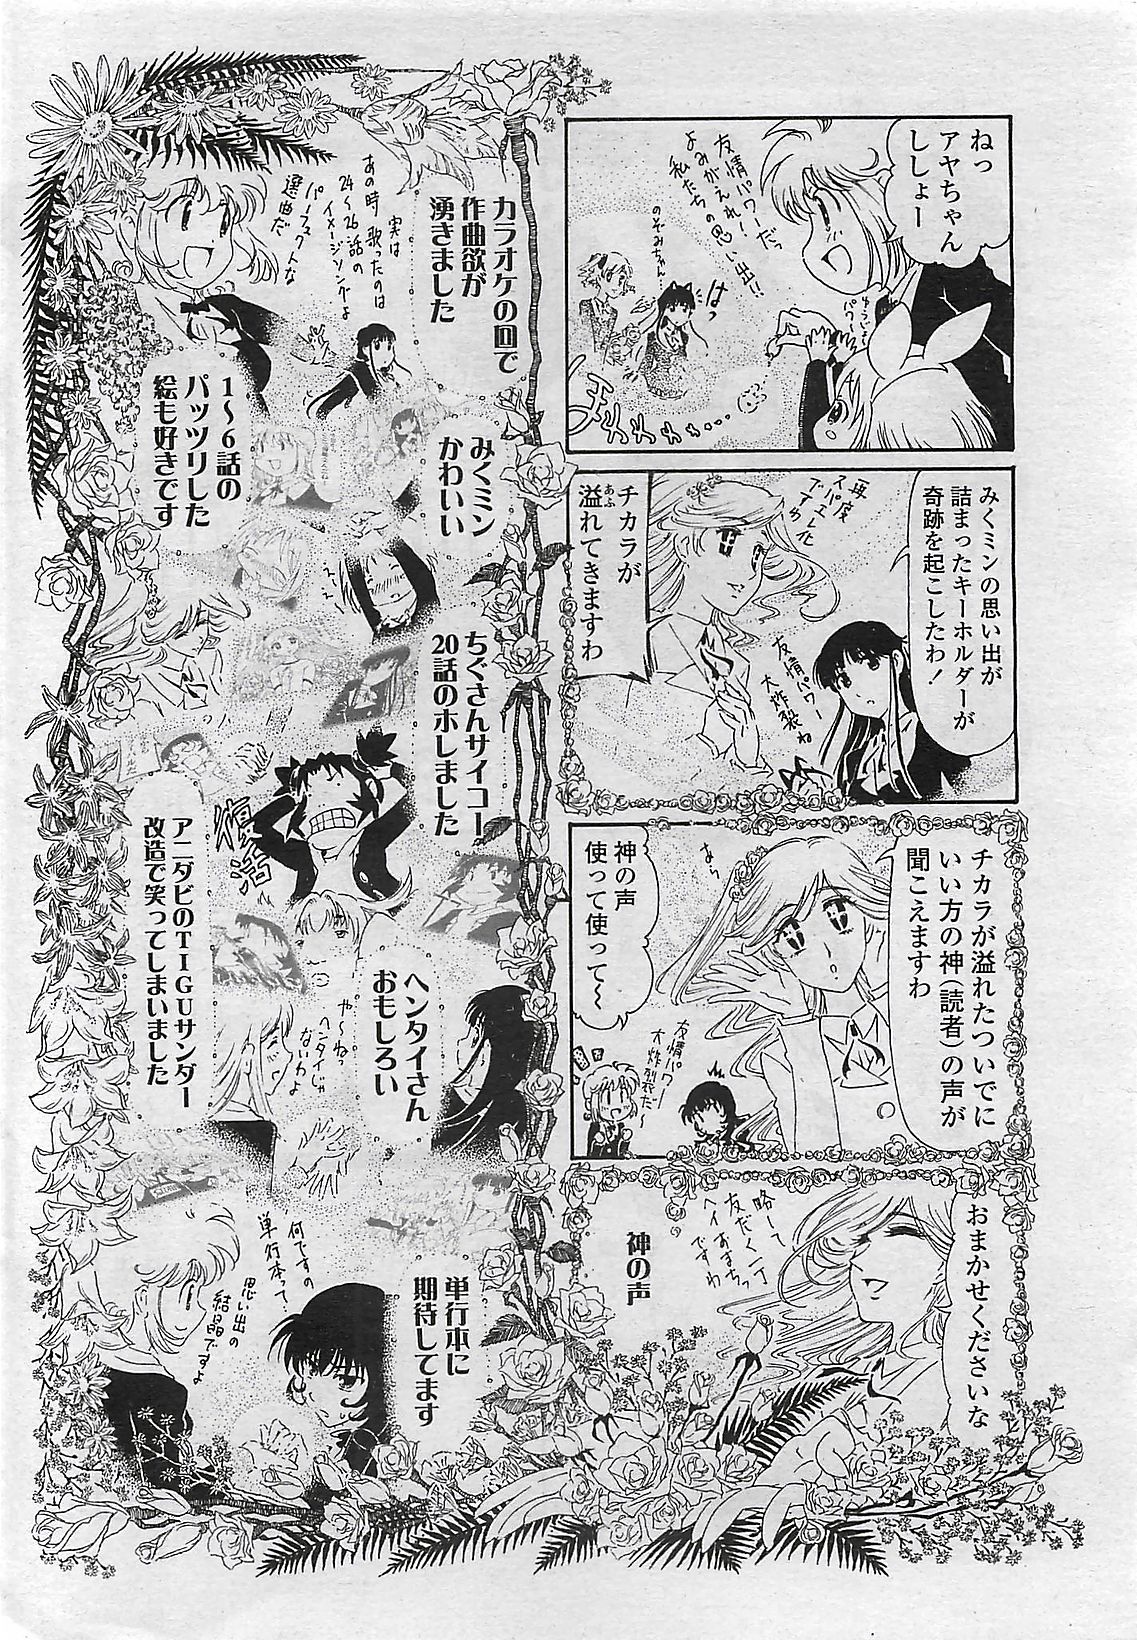 ねっ
アヤちゃん
ししょー
ゆうじょう
パワー
友情パワーだっ
よみがえれー!
私たちの思い出!!
のぞみちゃん…
はっ
みくミンの思い出が
詰まったキーホルダーが
奇跡を起こしたわ!
再度
スパエレ化
ですゎ
チカラが
溢れてきますわ
あふ
友情パワー
大炸裂ね
チカラが溢れたついでに
いい方の神(読者)の声が
聞こえますわ
なら
神の声
使って使って〜
友情パワー
大炸裂だー
おまかせくださいな
略して
ですわ
神の声
カラオケの回で
作曲欲が
湧きました
実は
あの時歌ったのは
24〜26話の
イメージソングよ
パーフェクトな
選曲だ
みくミン
かわいい
1〜6話の
パッツリした
絵も好きです
えへ
ちぐさんサイコー
20話のホしました
復活
アニタビのTIGUサンダー
改造で笑ってしまいました
ヘンタイさん
おもしろい
や〜ねっ
ヘンタイじゃ
ないわよ
単行本に
期待してます
何ですの
単行本って…
思い出の
結晶ですよ